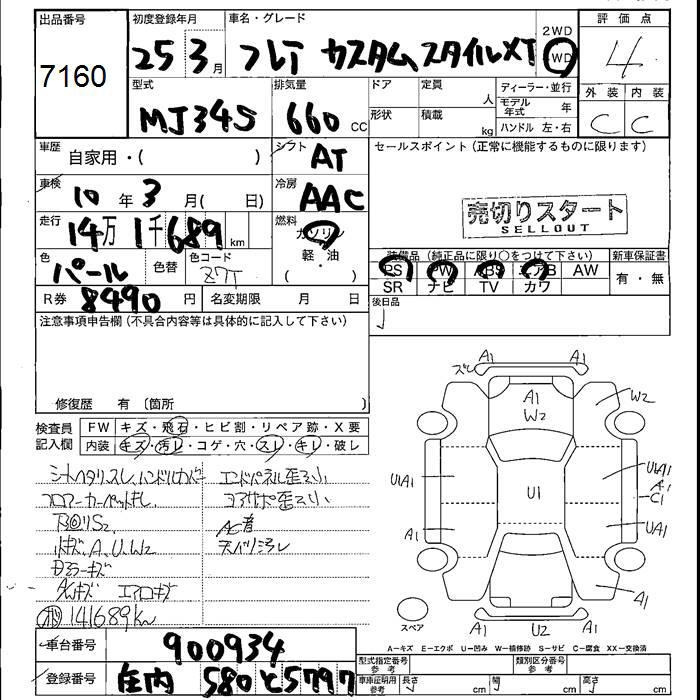 出品番号 初度登録年月 車名・グレード 2WD 評価点
7160 25 3月 フレア カスタムスタイルXT 4WD 4
型式 排気量 ドア 定員 人 ディーラー・並行 外装 内装
MJ34S 660 CC 形状 積載 kg モデル年式 年 C C
ハンドル 左・右
車歴 自家用・( ) シフト AT セールスポイント(正常に機能するものに限ります)
車検 10年 3月( 日) 冷房 AAC
売切りスタート
SELLOUT
走行 14万1千689km 燃料 ガソリン
軽・油
色 パール 色替 色コード Z7T
装備品(純正品に限り〇をつけて下さい) 新車保証書
PS PW ABS エアB AW 有・無
SR ナビ TV カワ
R券 8490円 名変期限 月 日 後日品
注意事項申告欄(不具合内容等は具体的に記入して下さい)
修復歴 有 〔箇所 〕
検査員記入欄 FW キズ・飛石・ヒビ割・リペア跡・X要
内装 キズ・汚レ・コゲ・穴・スレ・キレ・破レ
シートヘタリスレ、ハンドルカバー エンドパネル歪ミ小
フロアーカーペットキレ コアサポ歪ミ小
AC青
天バリ汚レ
キズ、A、U、W2
エアロキズ
141689km
ズレ A1 A1
A1
W2
W2
U1A1 U1 U1A1
A1
C1
A1 U1A1
A1
A1 U2 A1
スペア
A-キズ E-エクボ U-凹み W-補修跡 S-サビ C-腐食 XX-交換済
車台番号 900934
型式指定番号 参考 類別区分番号 参考
登録番号 庄内 580 と 5797
車庫証明用参考 長さ cm 幅 cm 高さ cm